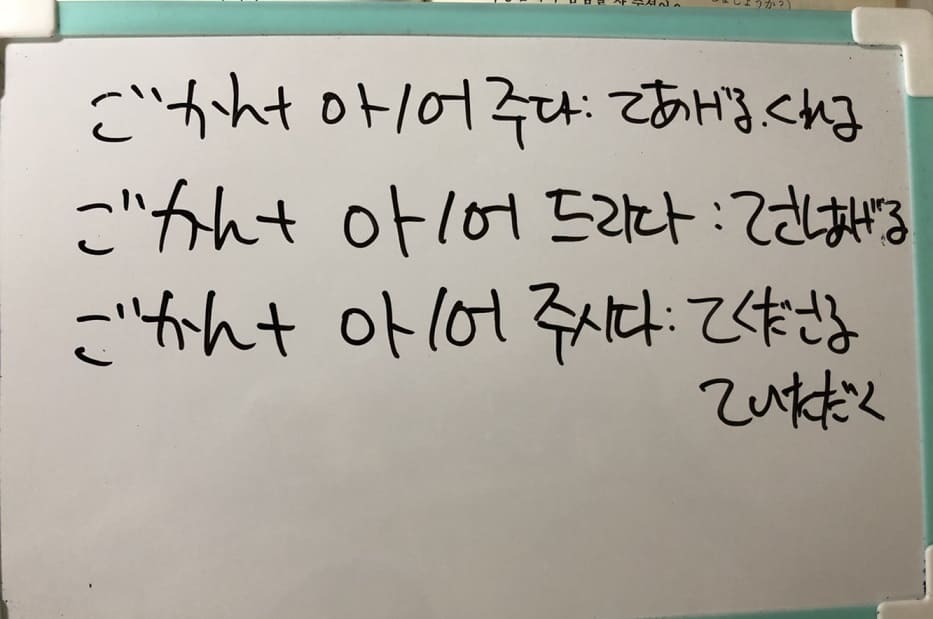 ごかん+ 아/어 주다: てあげる.くれる
ごかん+ 아/어 드리다:てさしあげる
ごかん+ 아/어 주시다: てくださる
ていただく